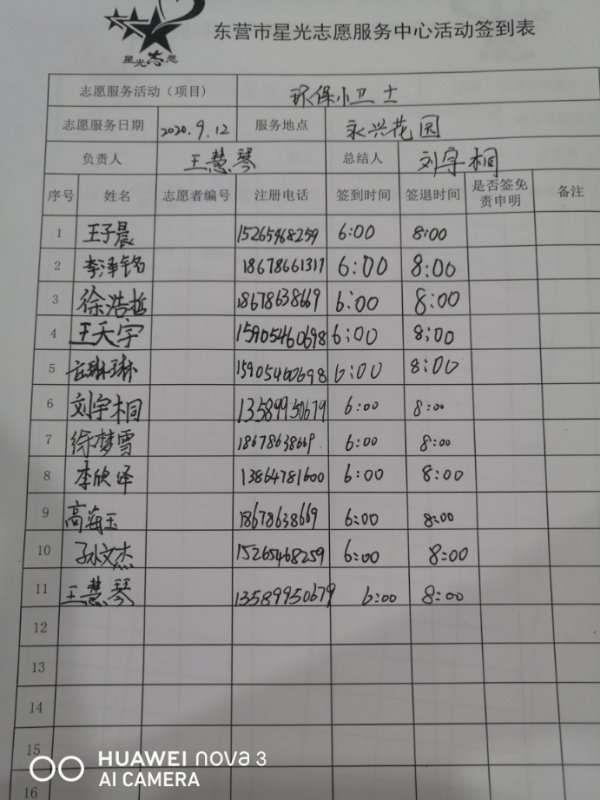 星光志愿
东营市星光志愿服务中心活动签到表
志愿服务活动（项目） 环保小卫士
志愿服务日期 2020.9.12 服务地点 永兴花园
负责人 王慧琴 总结人 刘宇桐
序号 姓名 志愿者编号 注册电话 签到时间 签退时间 是否签免责申明 备注
1 王子晨 15265468259 6:00 8:00
2 李泽铭 18678661317 6:00 8:00
3 徐浩哲 18678638669 6:00 8:00
4 王天宇 15905460698 6:00 8:00
5 15905460698 6:00 8:00
6 刘宇桐 13589950679 6:00 8:00
7 徐梦雪 18678638669 6:00 8:00
8 李欣泽 13864781600 6:00 8:00
9 高海玉 18678638669 6:00 8:00
10 孙文杰 15265468259 6:00 8:00
11 王慧琴 13589950679 6:00 8:00
12
13
14
15
16
HUAWEI nova 3
AI CAMERA